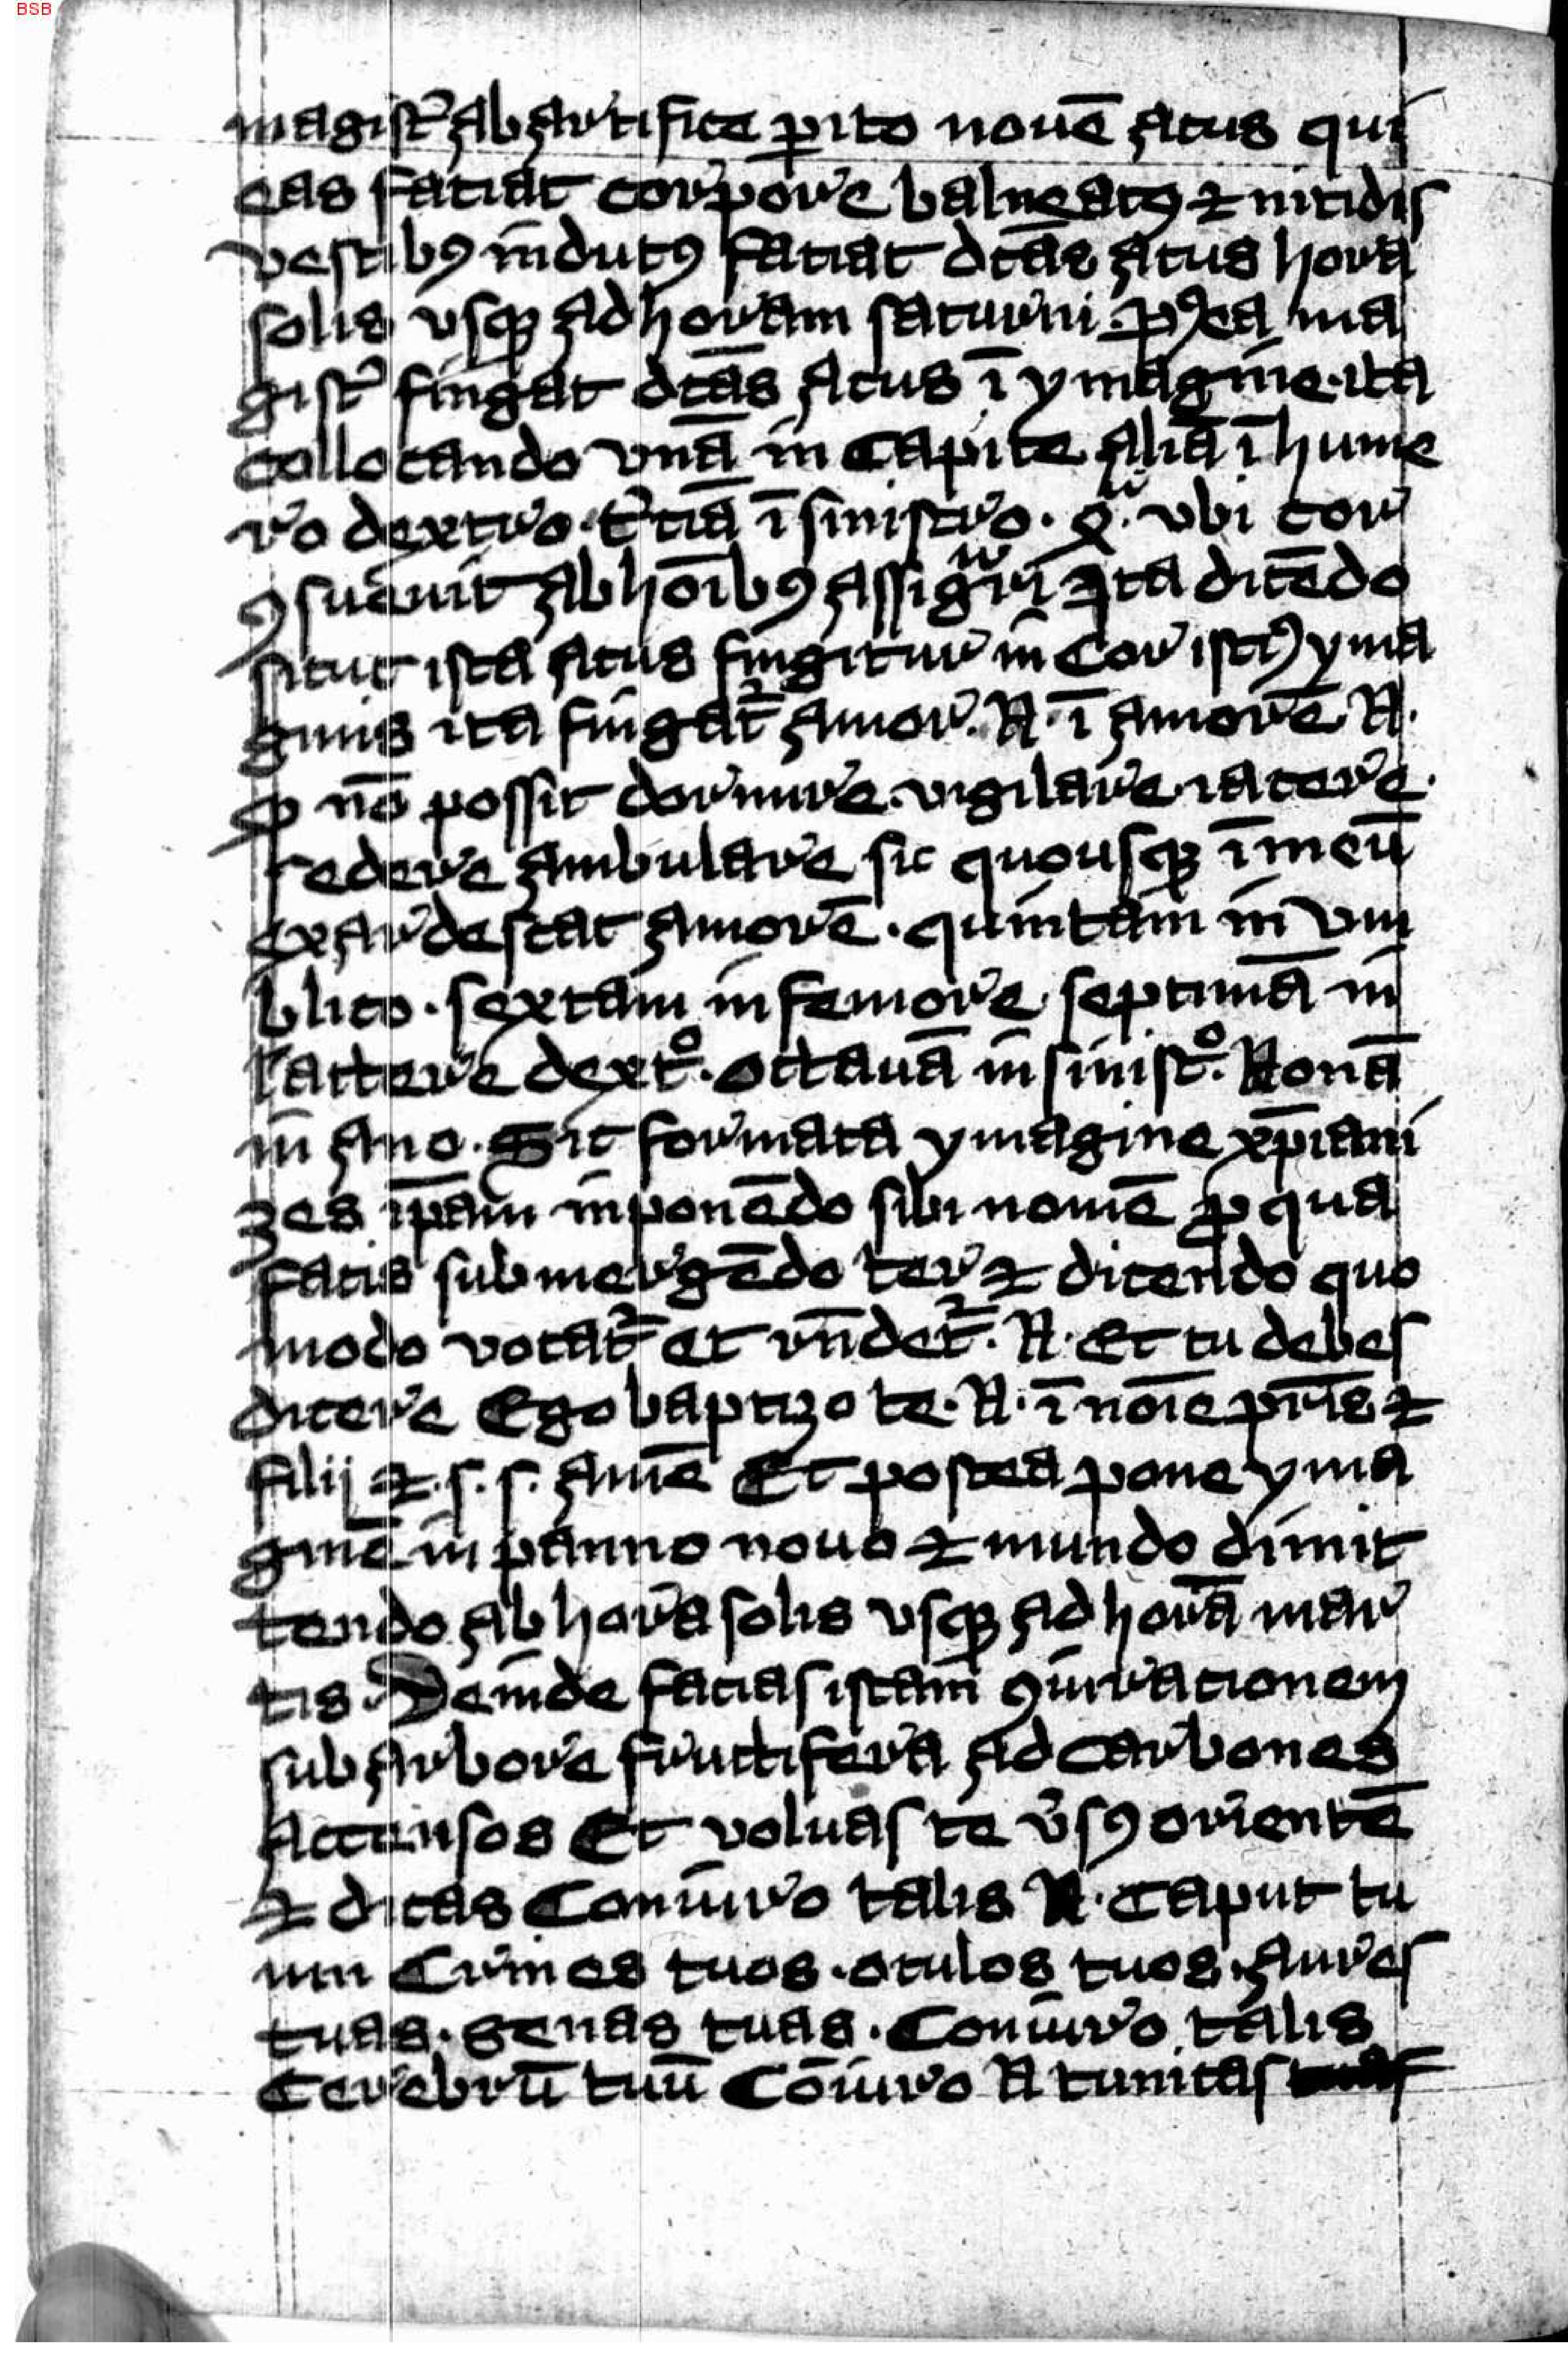 BSB
magist͛ ab artifice ꝑito nouē acus qui
eas faciat corpore balneatꝯ ⁊ nitidis
vestibꝯ indutꝯ faciat dc̄as acus hora
solis vsqꝫ ad horam saturni. pꝰea ma
gist͛ fingat dc̄as acus ī ymagine. ita
collocando vnā in capite aliā ī hume
ro dextro. t͛ciā ī sinistro. q͛. vbi cor
ꝯsueuit ab hoībꝯ assigri ita dicēdo
sicut ista acus fingitur in cor istiꝰ yma
ginis ita fingat᷑ amor. N. ī amorē N.
ꝙ nō possit dormire. vigilare. iacere.
sedere ambulare sic quousqꝫ ī meū
exardescat amorē. quintam in vm
blico. sextam in femore septimā in
lattere dextͦ. octauā in sinistͦ. Nonā
in ano. Sic formata ymagine xp̄iani
zes ip̄am inponēdo sibi nomē ꝓ qua
facis submergēdo ter ⁊ dicendo quo
modo vocat᷑ et rn̄det᷑. N. Et tu debes
dicere Ego baptizo te. N. ī noīe pr̄is ⁊
filij ⁊. s. s. amē Et postea pone yma
ginē in panno nouo ⁊ mundo dimit
tendo ab hora solis vsqꝫ ad horā mar
tis. Deinde facias istam ꝯiurationem
sub arbore fructifera ad carbones
accensos Et voluas te v͛sꝯ orientē
⁊ dicas Coniuro talis N. caput tu
um Crines tuos. oculos tuos. aures
tuas. genas tuas. Coniuro talis
Cerebrū tuū Cōiuro N tunicas